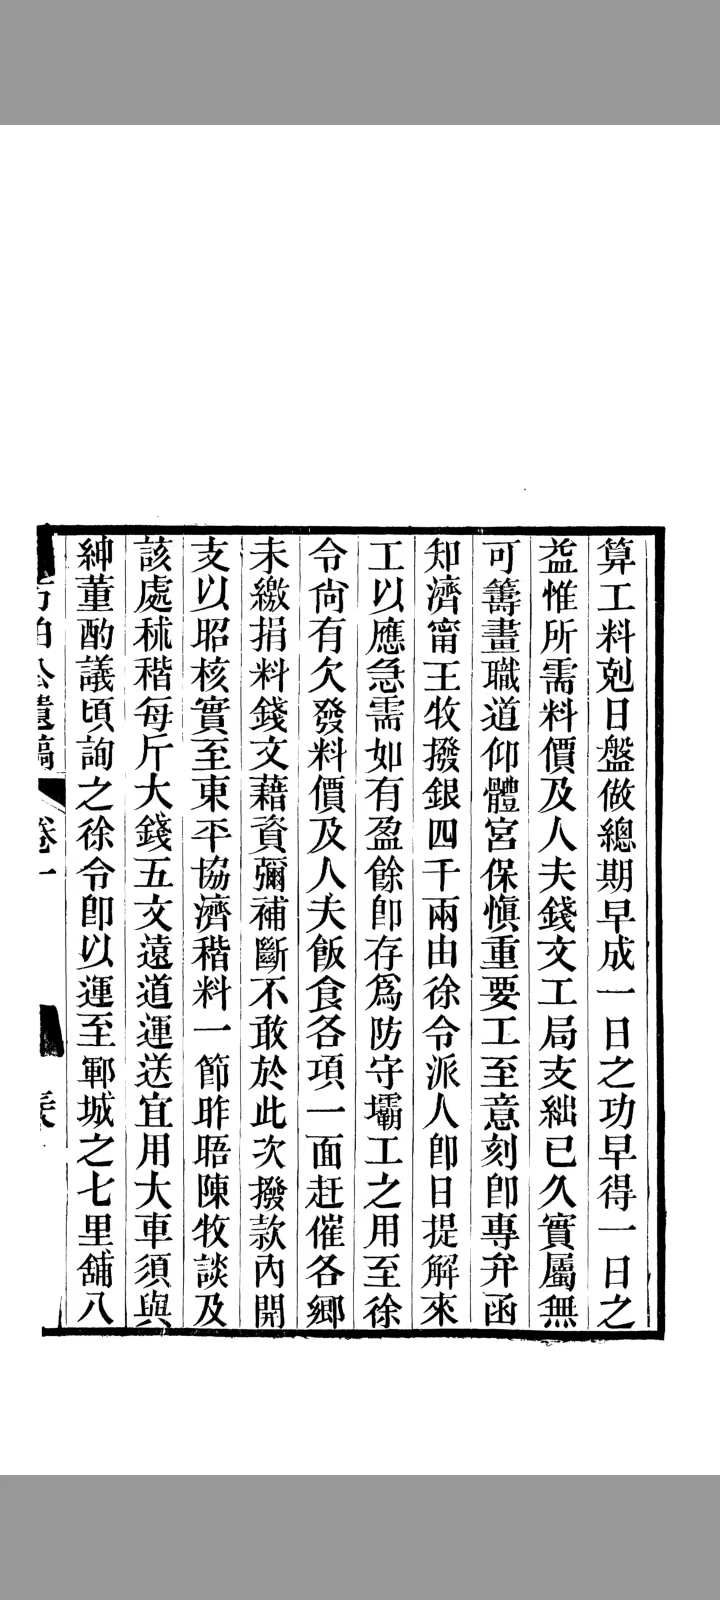 算工料剋日盤做總期早成一日之功早得一日之
益惟所需料價及人夫錢文工局支絀已久實屬無
可籌畫職道仰體宮保愼重要工至意刻卽專弁函
知濟甯王牧撥銀四千兩由徐令派人卽日提解來
工以應急需如有盈餘卽存爲防守壩工之用至徐
令尙有欠發料價及人夫飯食各項一面赶催各鄉
未繳捐料錢文藉資彌補斷不敢於此次撥款內開
支以昭核實至東平協濟稭料一節昨晤陳牧談及
該處秫稭每斤大錢五文遠道運送宜用大車須與
紳董酌議頃詢之徐令卽以運至鄆城之七里舖八
方伯公遺稿 卷一